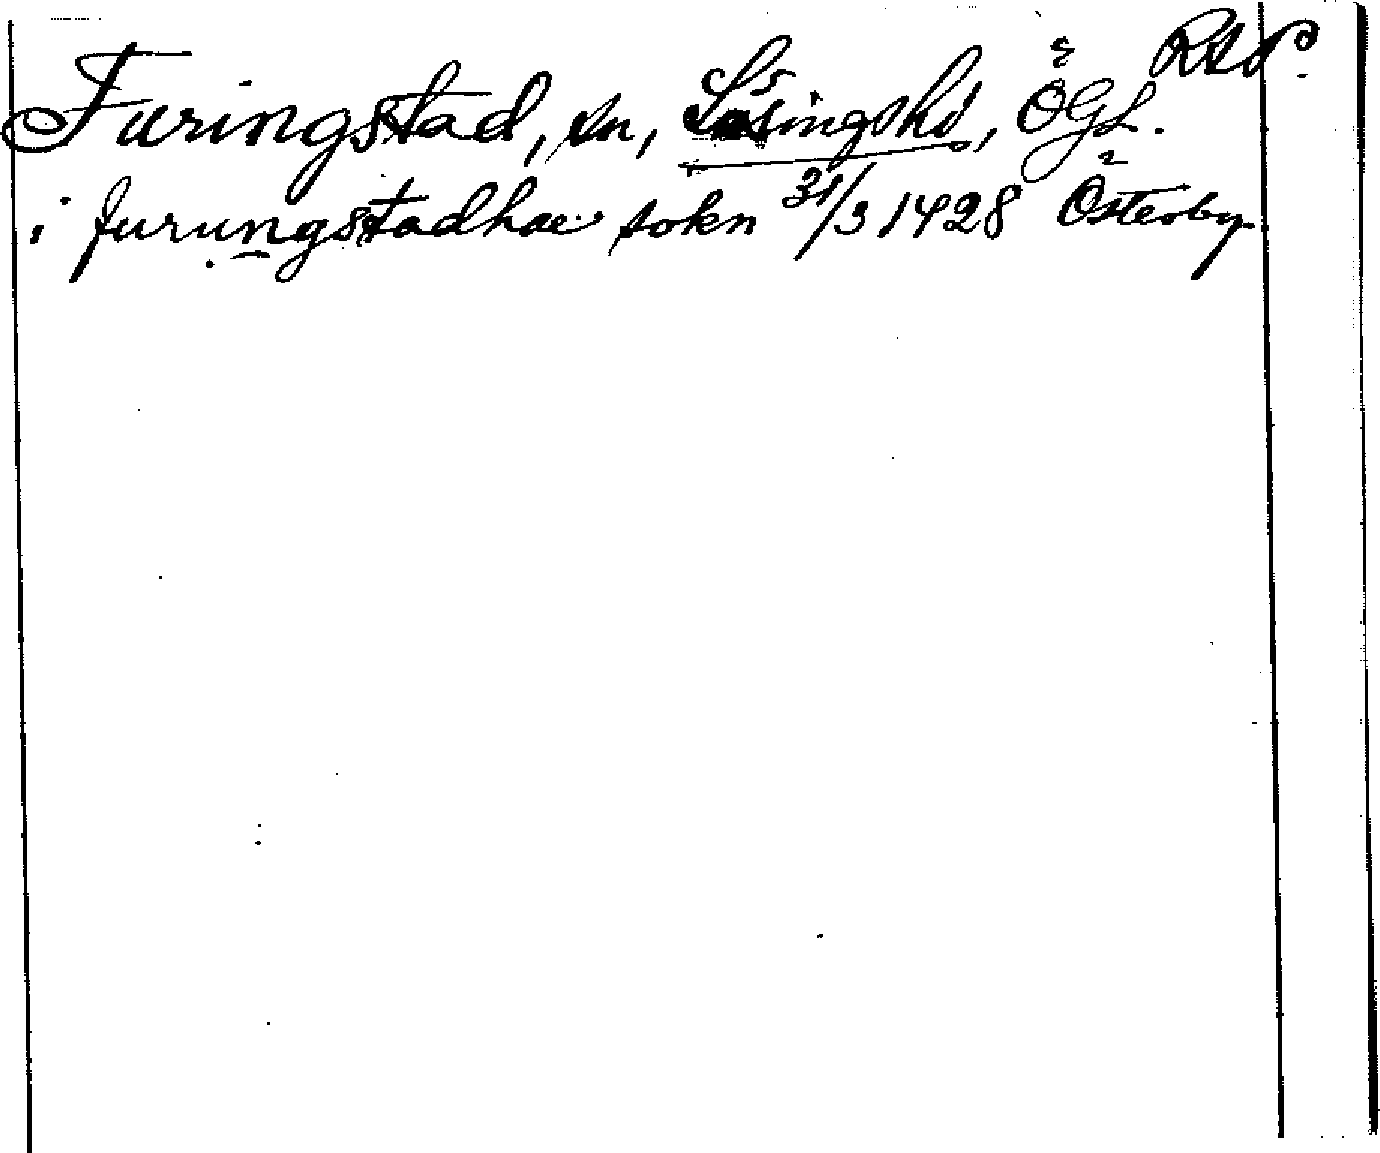 Furingstad, sn, Lösingshd, ÖGL. RAp.
i furungstadhae sokn 31/3 1428 Österby